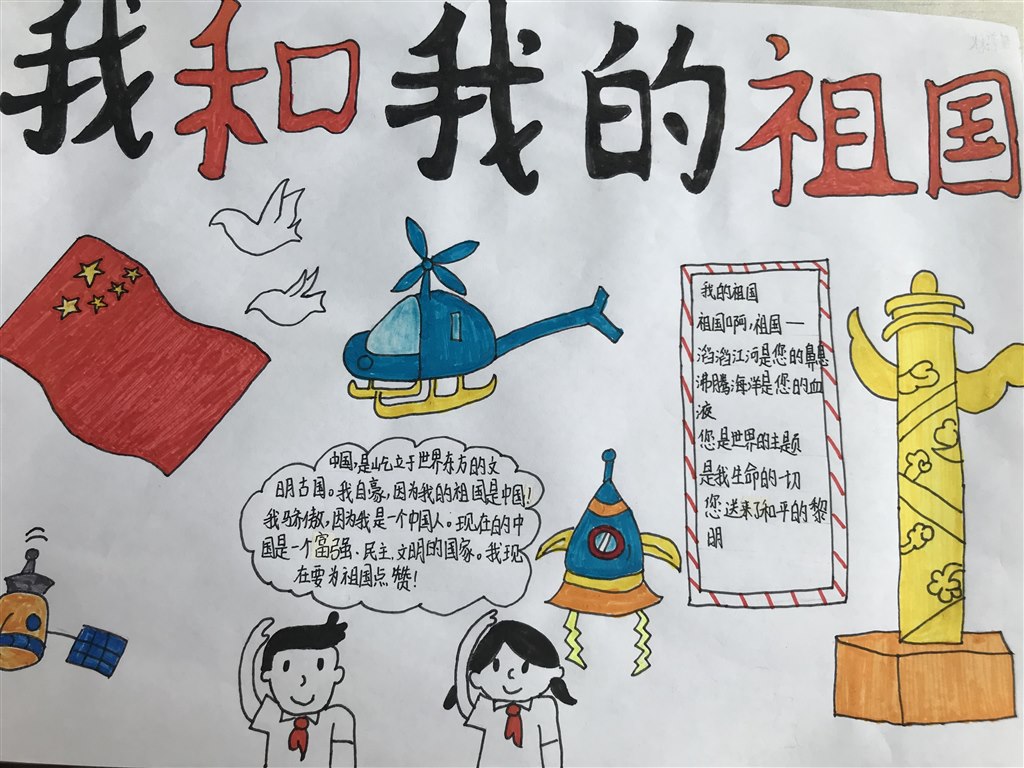 我和我的祖国
中国,是屹立于世界东方的文
明古国。我自豪,因为我的祖国是中国!
我骄傲,因为我是一个中国人。现在的中
国是一个富强、民主、文明的国家。我现
在要为祖国点赞!
我的祖国
祖国啊,祖国—
滔滔江河是您的鼻息
沸腾海洋是您的血
液
您是世界的主题
是我生命的一切
您送来了和平的黎
明